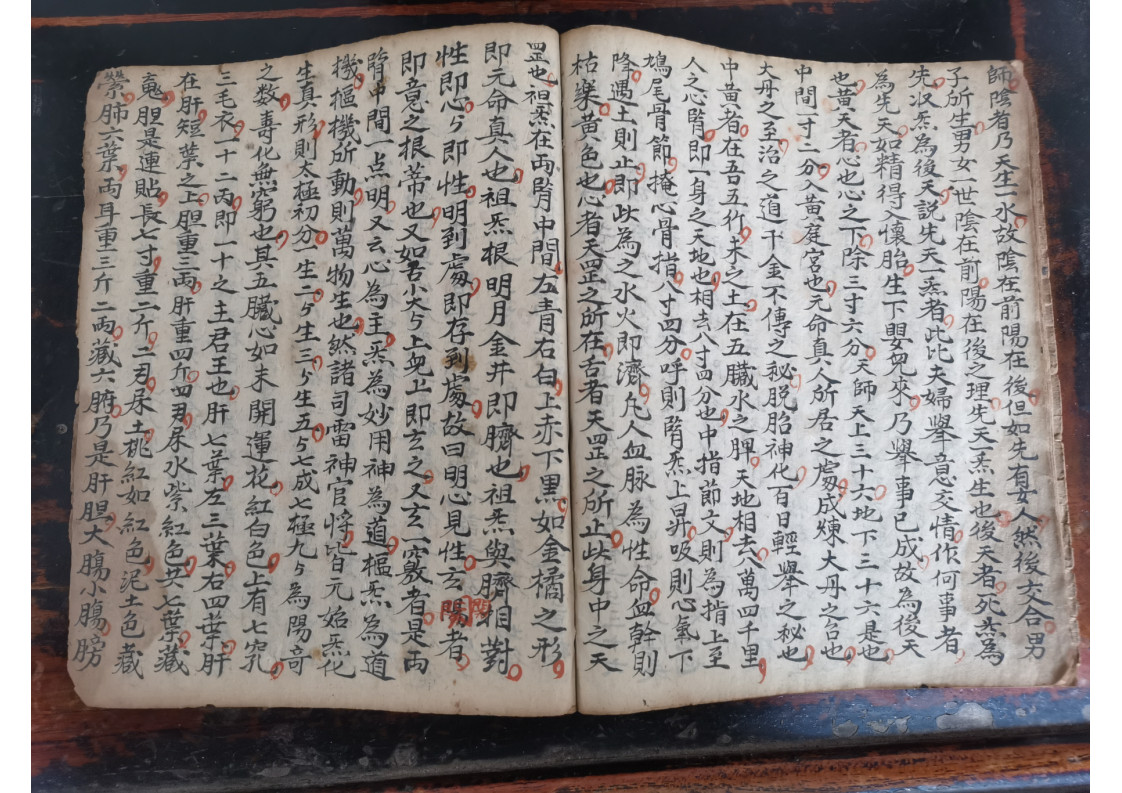 師陰者乃天生一水故陰在前陽在後但如先有女人然後交合男
子所生男女一世陰在前陽在後之理先天炁生也後天者死炁為
先次炁為後天説先天一炁者此比夫婦舉意交情作何事者
為先天如精得入懷胎生下嬰兒來乃舉事已成故為後天
也黄天者心也心之下除三寸六分天師天上三十六地下三十六是也
中間一寸二分入黄庭宮也元命真人所居之處成煉大丹之台也
大丹之至治之道千金不傳之秘脱胎神化百日輕舉之秘也
中黄者在吾五作未之土在五臟水之脾天地相去八萬四千里
人之心腎即一身之天地也相去八寸四分也中指節文則為指上至
鳩尾骨節掩心骨指八寸四分呼則腎炁上昇吸則心氣下
降遇土則止即此為之水火即濟凡人血脉為性命血幹則
枯樂黄色也心者天罡之所在舌者天罡之所止此身中之天
罡也祖炁在両腎中間左青右白上赤下黒如金橘之形
即元命真人也祖炁根明月金井即臍也祖炁與臍相對
性即心々即性明到處即存到處故曰明心見性玄陽者
即意之根蒂也又如舌小大々上兇止即玄之又玄一竅者是両
腎中間一点明又云心為主炁為妙用神為道樞炁為道
機樞機所動則萬物生也然諸司雷神官将皆元始炁化
生真形則太極初分一生二々生三々生五々七成七極九々為陽奇
之数壽化無窮也其五臟心如未開蓮花紅白色上有七竅
三毛衣一十二両即一十之主君王也肝七葉左三葉右四葉肝
在肝短葉之上胆重三両肝重四斤四両尿水紫紅色共七葉藏
魂胆是連貼長七寸重二斤二両尿土桃紅如紅色泥土色藏
肺六葉両耳重三斤二両藏六腑乃是肝胆大腸小腸膀